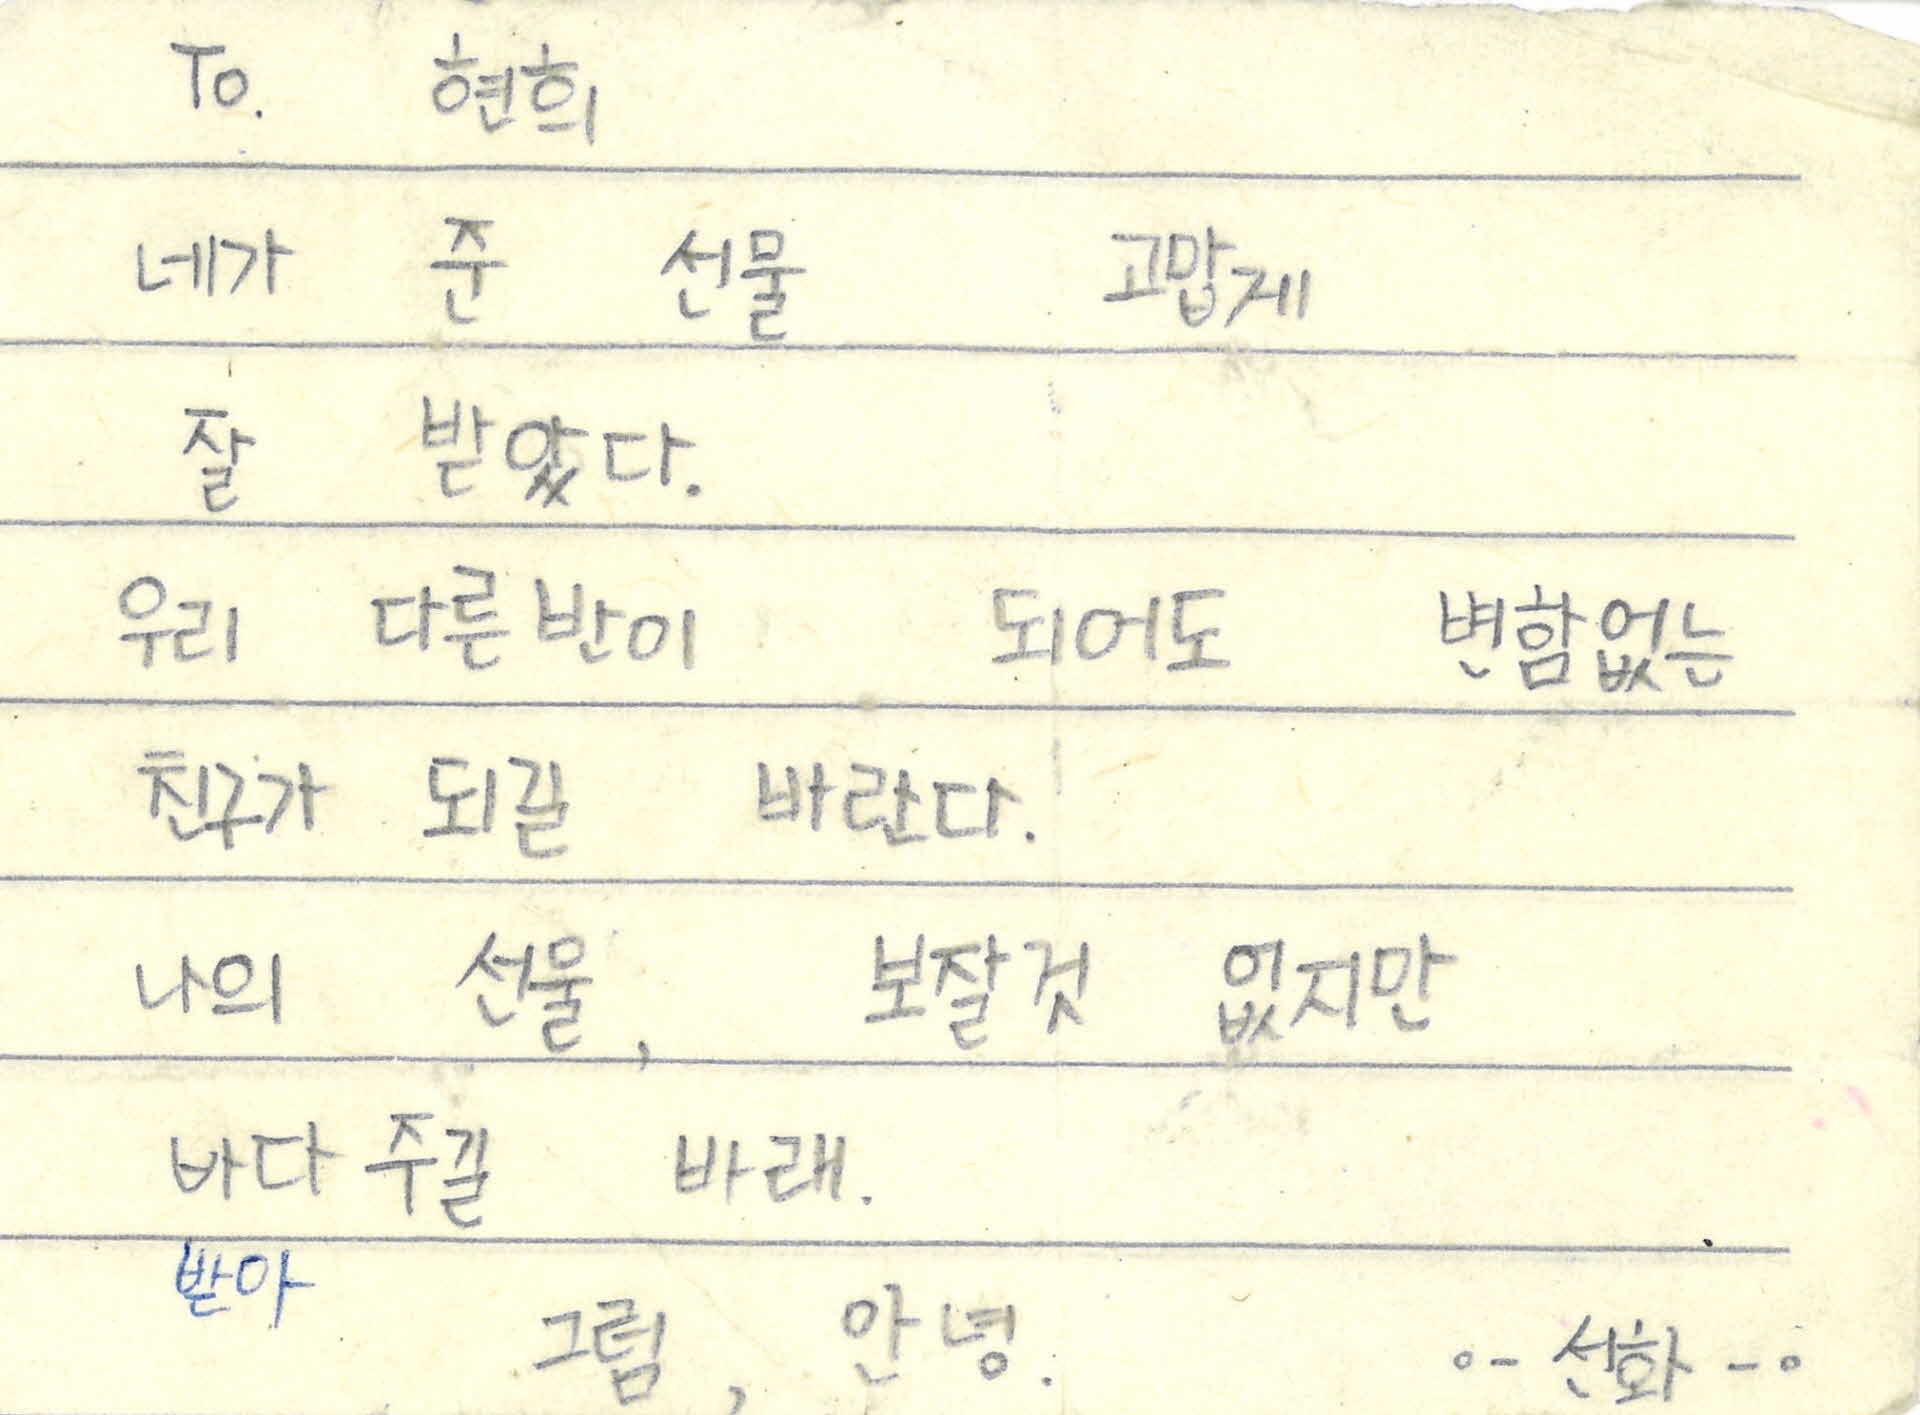 To. 현희
네가 준 선물 고맙게
잘 받았다.
우리 다른 반이 되어도 변함없는
친구가 되길 바란다.
나의 선울, 보잘것 없지만
바다 주길 바래.
받아
그럼, 안녕. ∘- 선화 -∘